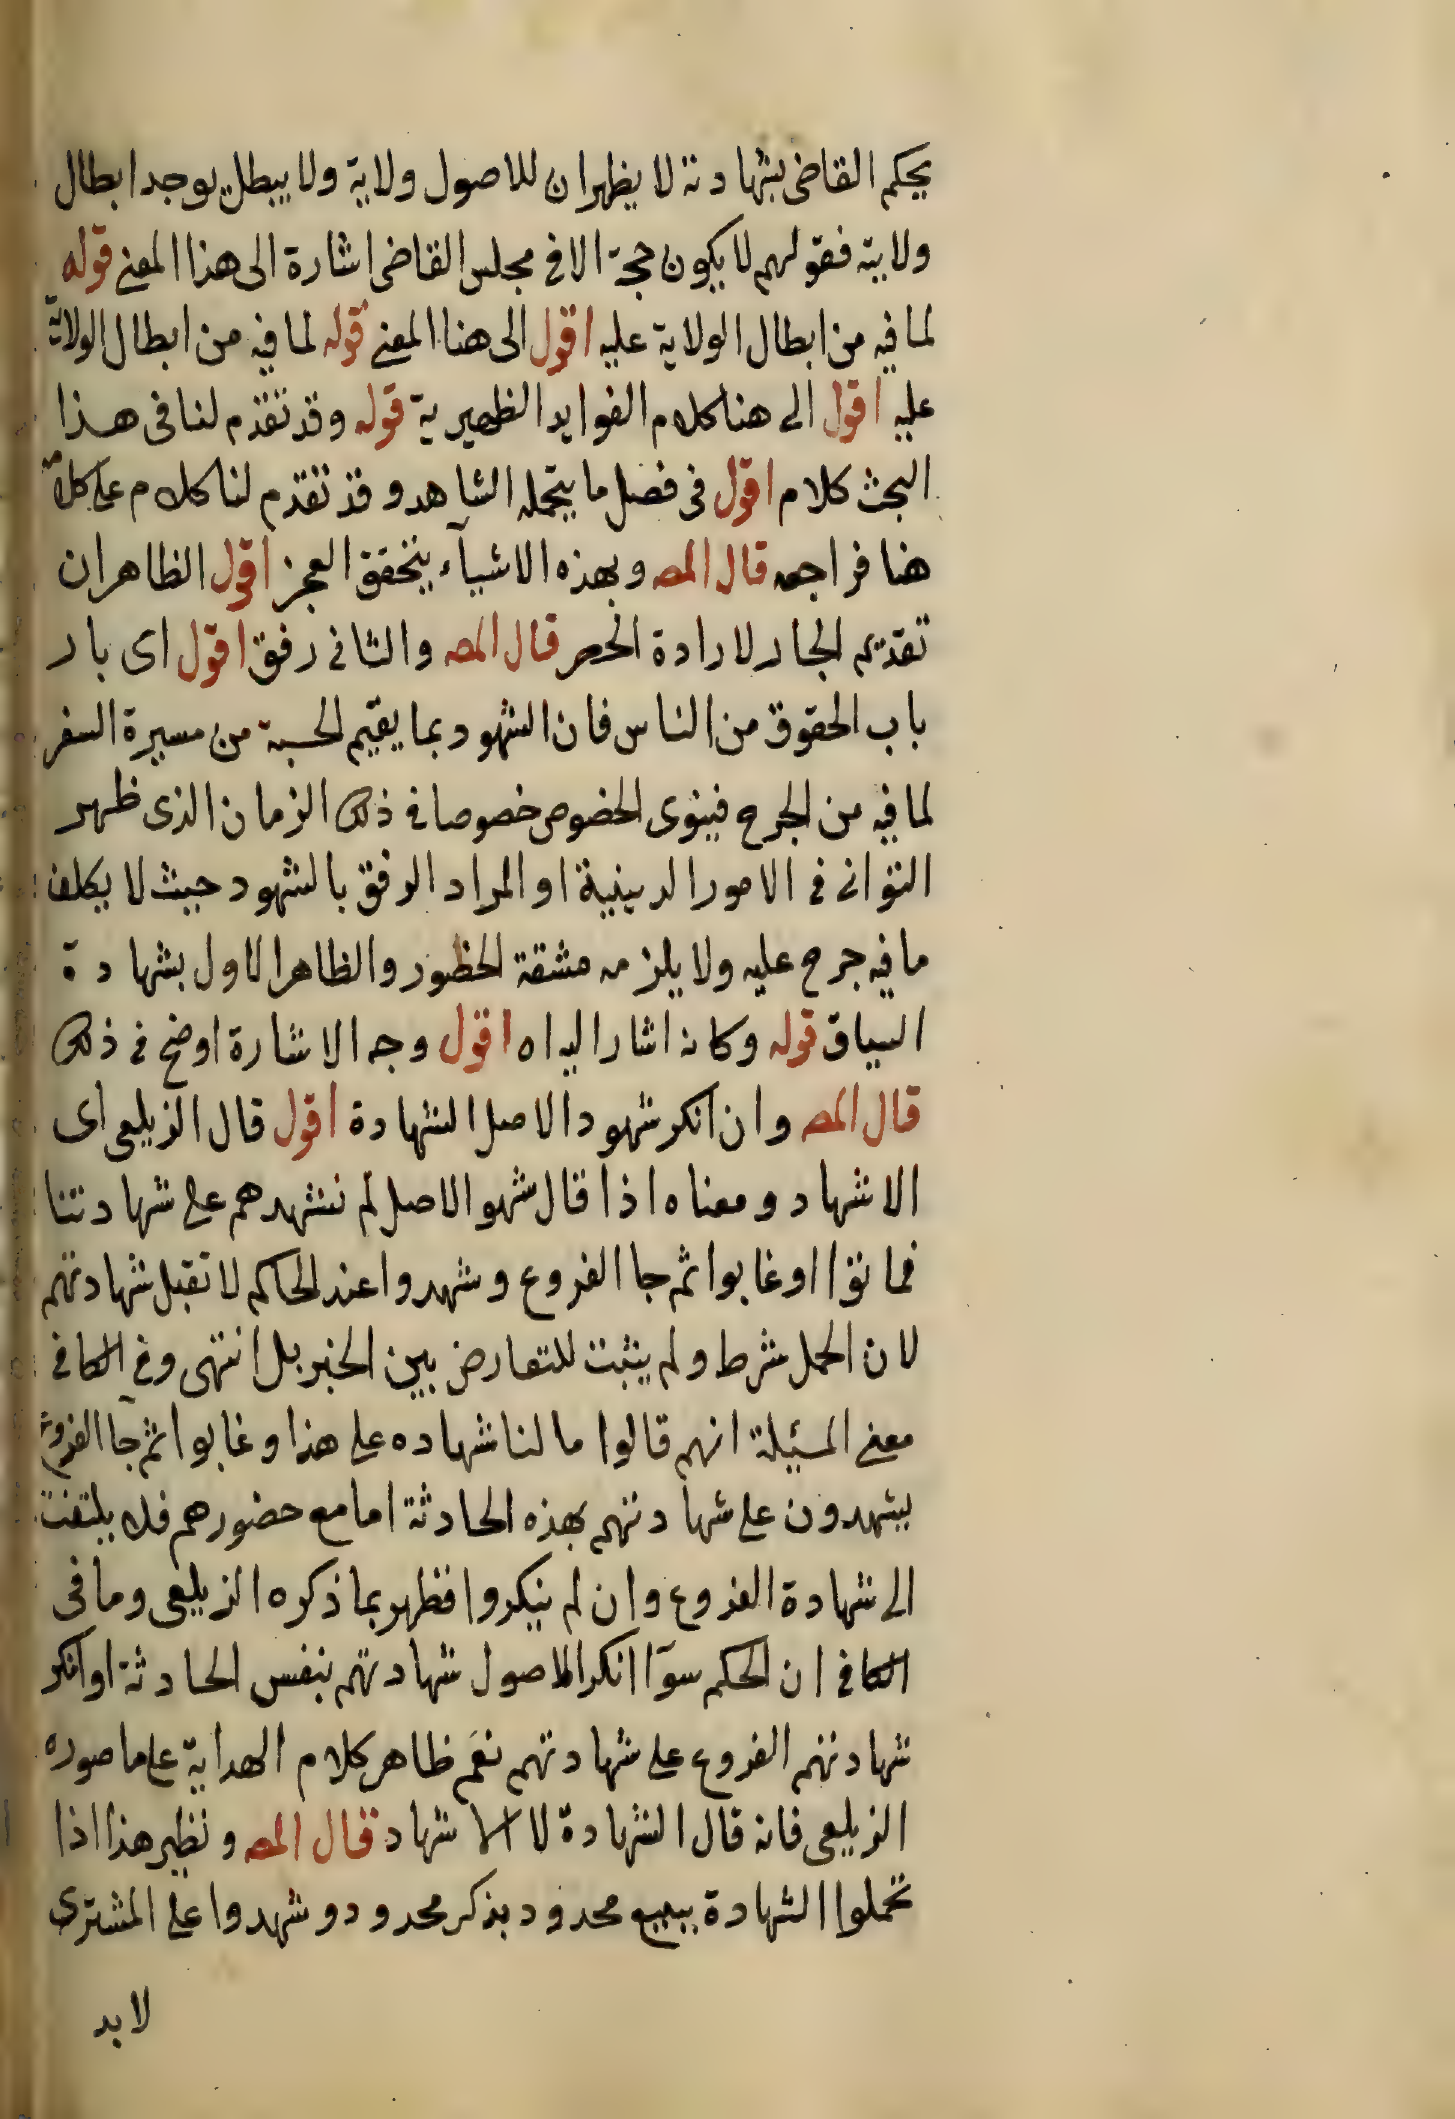 يحكم القاضى بشهادته لا يظهر ان للاصول ولاية ولا يبطل يوجد ابطال
ولايته فقولهم لا يكون حجة الا فى مجلس القاضى اشارة الى هذا المعنى قوله
لما فيه من ابطال الولاية عليه اقول الى هنا المعنى قوله لما فيه من ابطال الولاية
عليه اقول الى هنا كلام الفوايد الظهيرية قوله وقد تقدم لنا فى هذا
البحث كلام اقول فى فصل ما يتحمله الشاهد وقد تقدم لنا كلام على كلامه
هنا فراجعه قال المصـ وبهذه الاشيآء يتحقق العجز اقول الظاهر ان
تقديم الجار لارادة الحصر قال المصـ والثانى رفق اقول اى بار
باب الحقوق من الناس فان الشهود بما يقيم الحسبة من مسيرة السفر
لما فيه من الجرح فينوى الخصوص خصوصا فى ذلك الزمان الذى ظهر
التوانى فى الامور الدينية او المراد الرفق بالشهود حيث لا يكلف
ما فيه جرح عليه ولا يلزمه مشقة الحظور والظاهر الاول بشهادة
السياق قوله وكانه اشار اليه اه اقول وجه الاشارة اوضح فى ذلك
قال المصـ وان انكر شهود الاصل الشهادة اقول قال الزيلعى اى
الاشهاد ومعناه اذا قال شهو الاصل لم نشهدهم على شهادتنا
فماتوا او غابوا ثم جا الفروع وشهدوا عند الحاكم لا تقبل شهادتهم
لان الحمل شرط ولم يثبت للتعارض بين الخبر بل انتهى وفى الكافى
معنى المسئيلة انهم قالوا ما لنا شهاده على هذا وغابوا ثم جا الفروع
يشهدون على شهادتهم بهذه الحادثة اما مع حضورهم فلا يلتفت
الى شهادة الفروع وان لم ينكروا فظهر بما ذكره الزيلعى وما فى
الكافى ان الحكم سوآ انكر الاصول شهادتهم بنفس الحادثة او انكر
شهادتهم الفروع على شهادتهم نعم ظاهر كلام الهداية على ما صوره
الزيلعى فانه قال الشهادة لا الاشهاد قال المصـ ونظير هذا اذا
تحملوا الشهادة ببيع محدود بذكر محدود وشهدوا على المشترى
لا بد